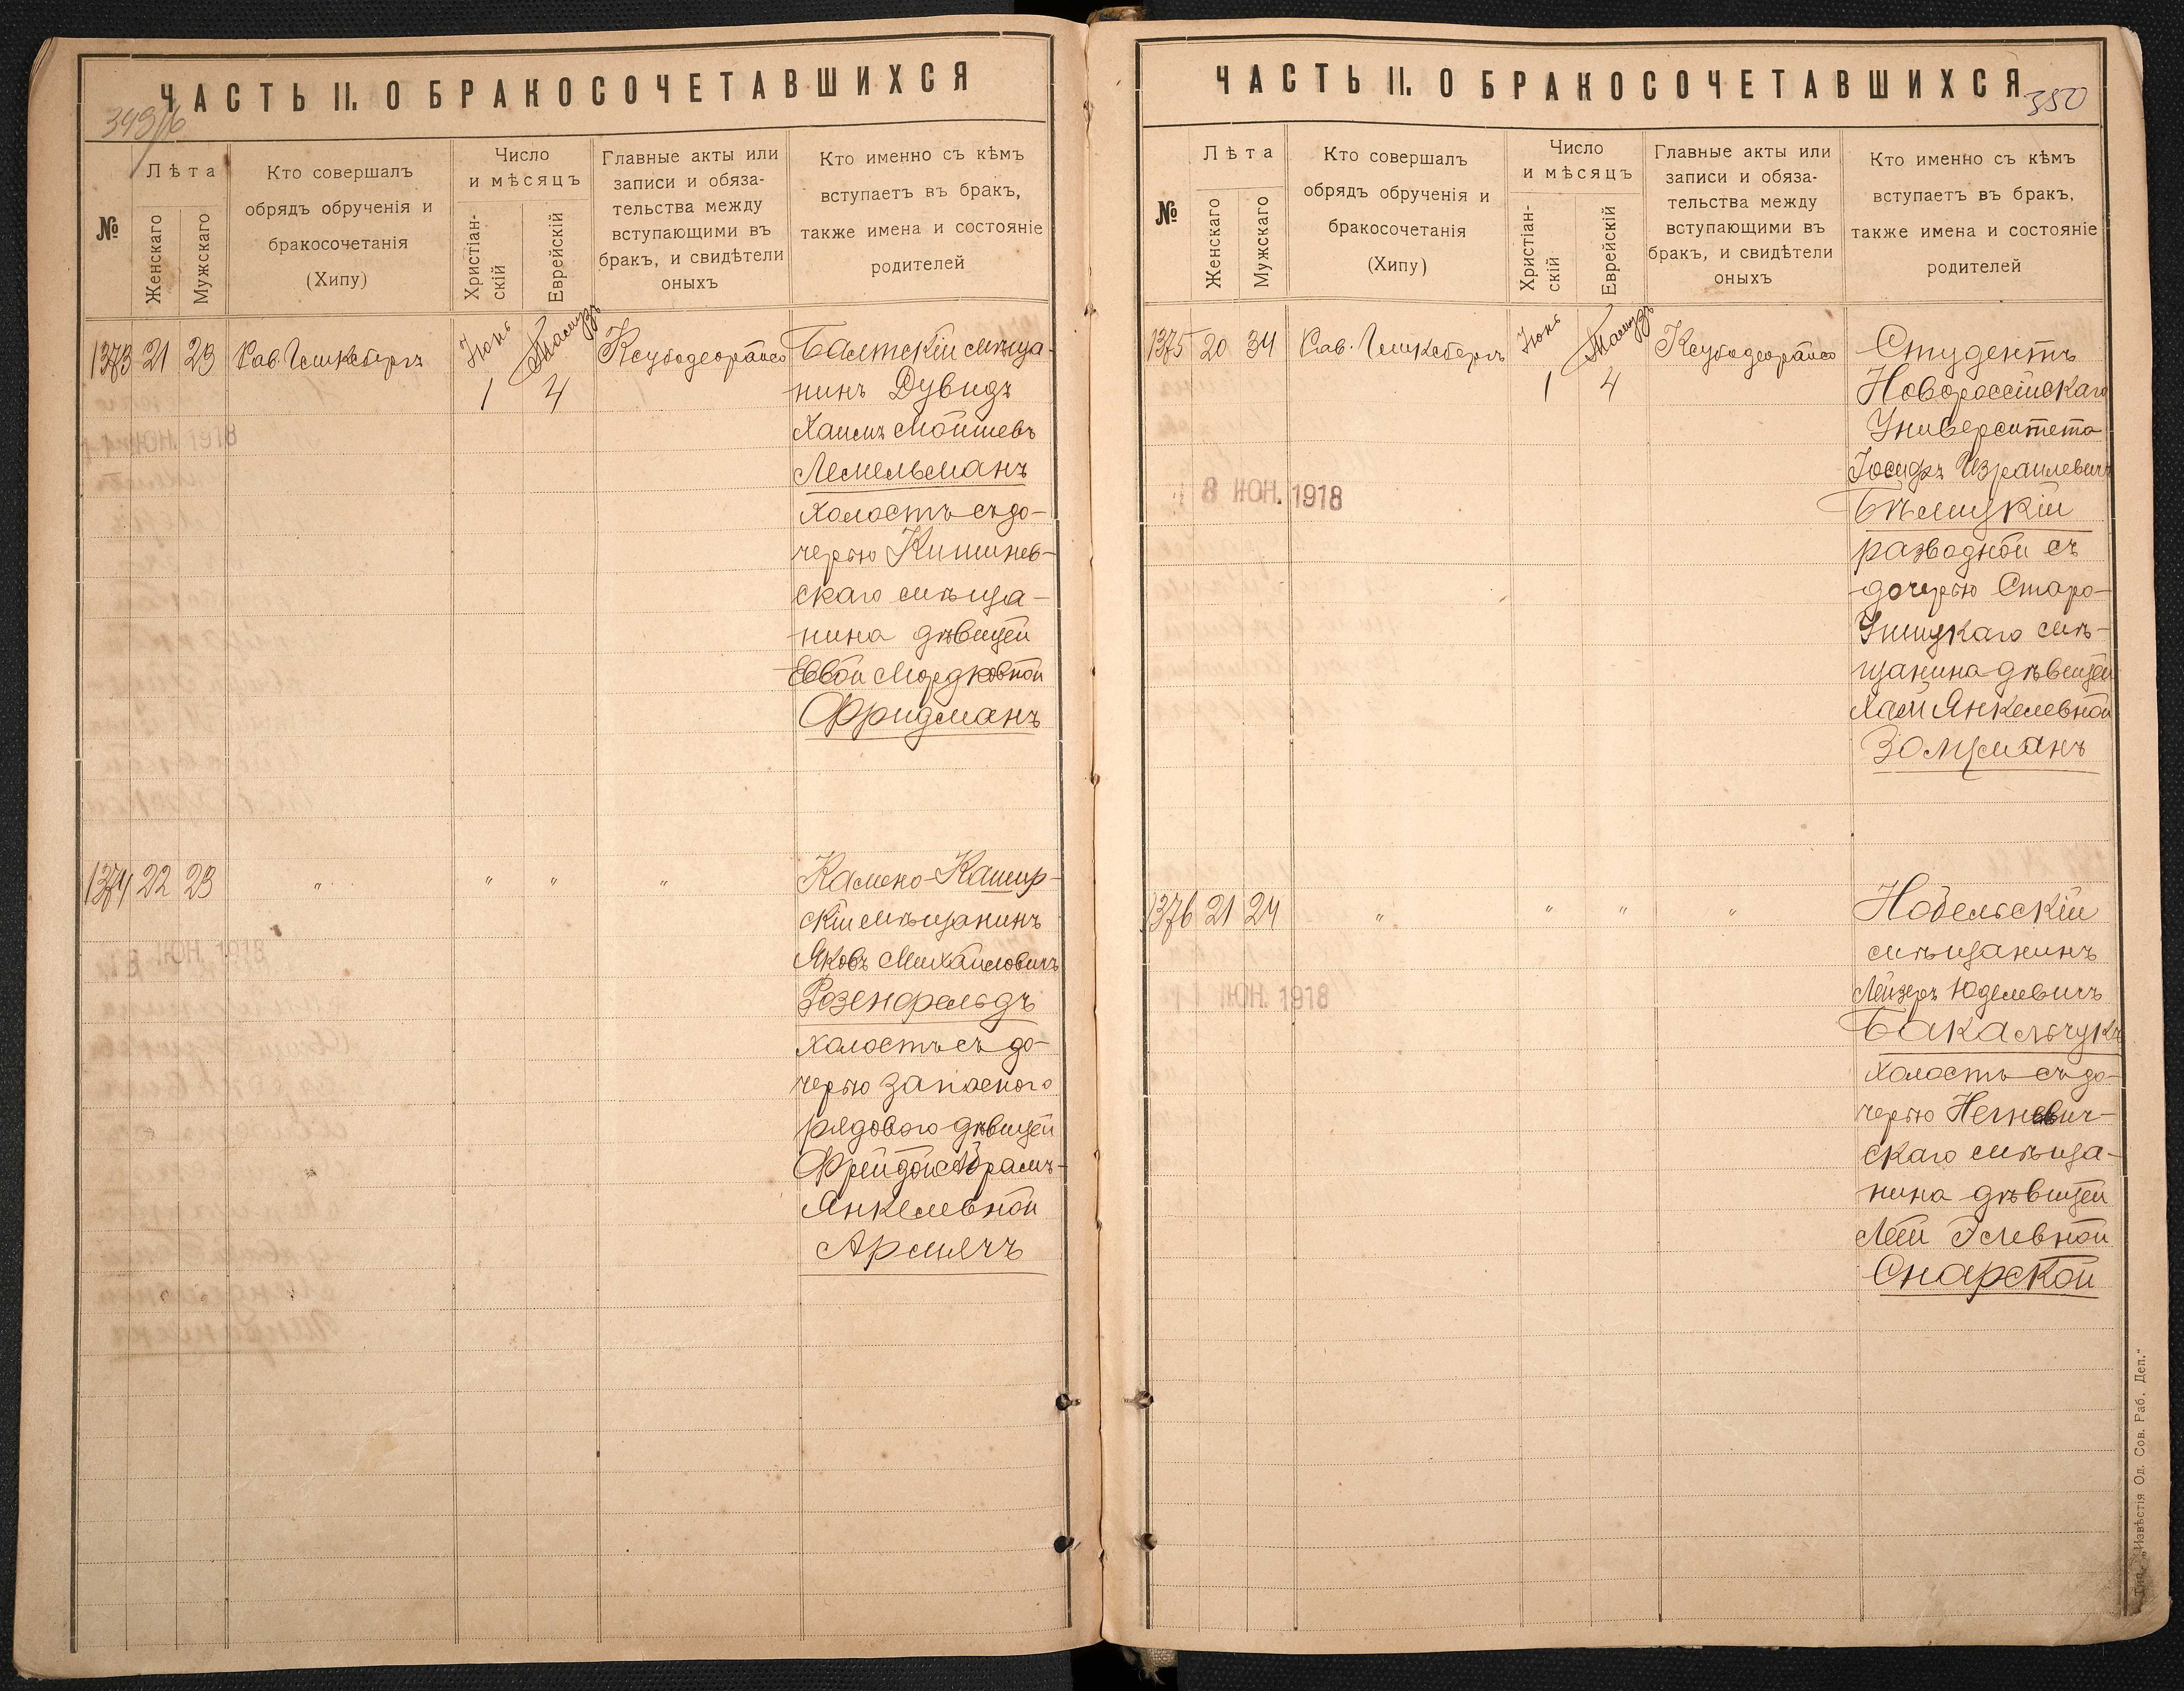 ЧАСТЬ II. О БРАКОСОЧЕТАВШИХСЯ
349/б
№
Лѣта
Женскаго
Мужскаго
Кто совершалъ
обрядъ обрученія и
бракосочетанія
(Хипу)
Число
и мѣсяцъ
Христіан-
скій
Еврейскій
Главные акты или
записи и обяза-
тельства между
вступающими въ
бракъ, и свидѣтели
оныхъ
Кто именно съ кѣмъ
вступаетъ въ бракъ,
также имена и состояніе
родителей
1373 21 23 Рав. Гинксбергъ Іюнь 1 Тамузъ 4
Балтскій мѣща-
нинъ Дувидъ
Хаимъ Мошкевъ
Лемельманъ
холостъ съ до-
черью Кишинев-
скаго мѣща-
нина дѣвицей
Еввой Мордковной
Фридманъ
1374 22 23 " " " "
Камено-Кашир-
скій мѣщанинъ
Яковъ Михайловичъ
Розенфельдъ
холостъ съ до-
черью запасного
рядового дѣвицей
Фрейдой Абрамъ-
Янкелевной
Армячъ
ЧАСТЬ II. О БРАКОСОЧЕТАВШИХСЯ
350
№
Лѣта
Женскаго
Мужскаго
Кто совершалъ
обрядъ обрученія и
бракосочетанія
(Хипу)
Число
и мѣсяцъ
Христіан-
скій
Еврейскій
Главные акты или
записи и обяза-
тельства между
вступающими въ
бракъ, и свидѣтели
оныхъ
Кто именно съ кѣмъ
вступаетъ въ бракъ,
также имена и состояніе
родителей
1375 20 34 Рав. Гинксбергъ Іюнь 1 Тамузъ 4
Студентъ
Новороссійскаго
Университета
Іосифъ Израилевичъ
Бѣлицкій
разводной съ
дочерью Старо-
Ушицкаго мѣ-
щанина дѣвицей
Хаей Янкелевной
Зольцманъ
8 ІЮН. 1918
1376 21 24 " " " "
Нобельскій
мѣщанинъ
Лейзеръ Юделевичъ
Бакальчукъ
холостъ съ до-
черью Негневич-
скаго мѣща-
нина дѣвицей
Леей Іелевной
Снарской
ІЮН. 1918
Тип. „Извѣстія Од. Сов. Раб. Деп."